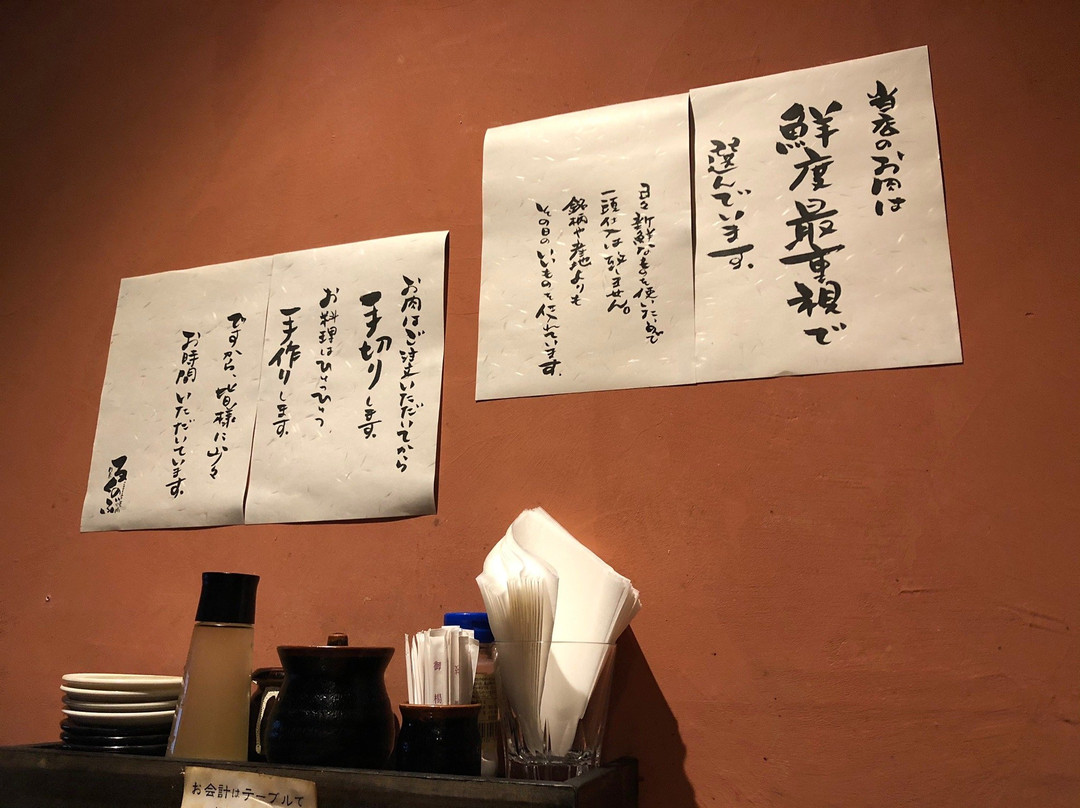 当店のお肉は
鮮度最重視で
選んでいます。
日々新鮮なものを使いたいので
一頭仕入は致しません。
銘柄や産地よりも
その日のいいものを仕入れています。
お肉はご注文いただいてから
手切りします。
お料理はひとつひとつ
手作りします。
ですから、皆様に少々
お時間いただいています。
御
お会計はテーブルで